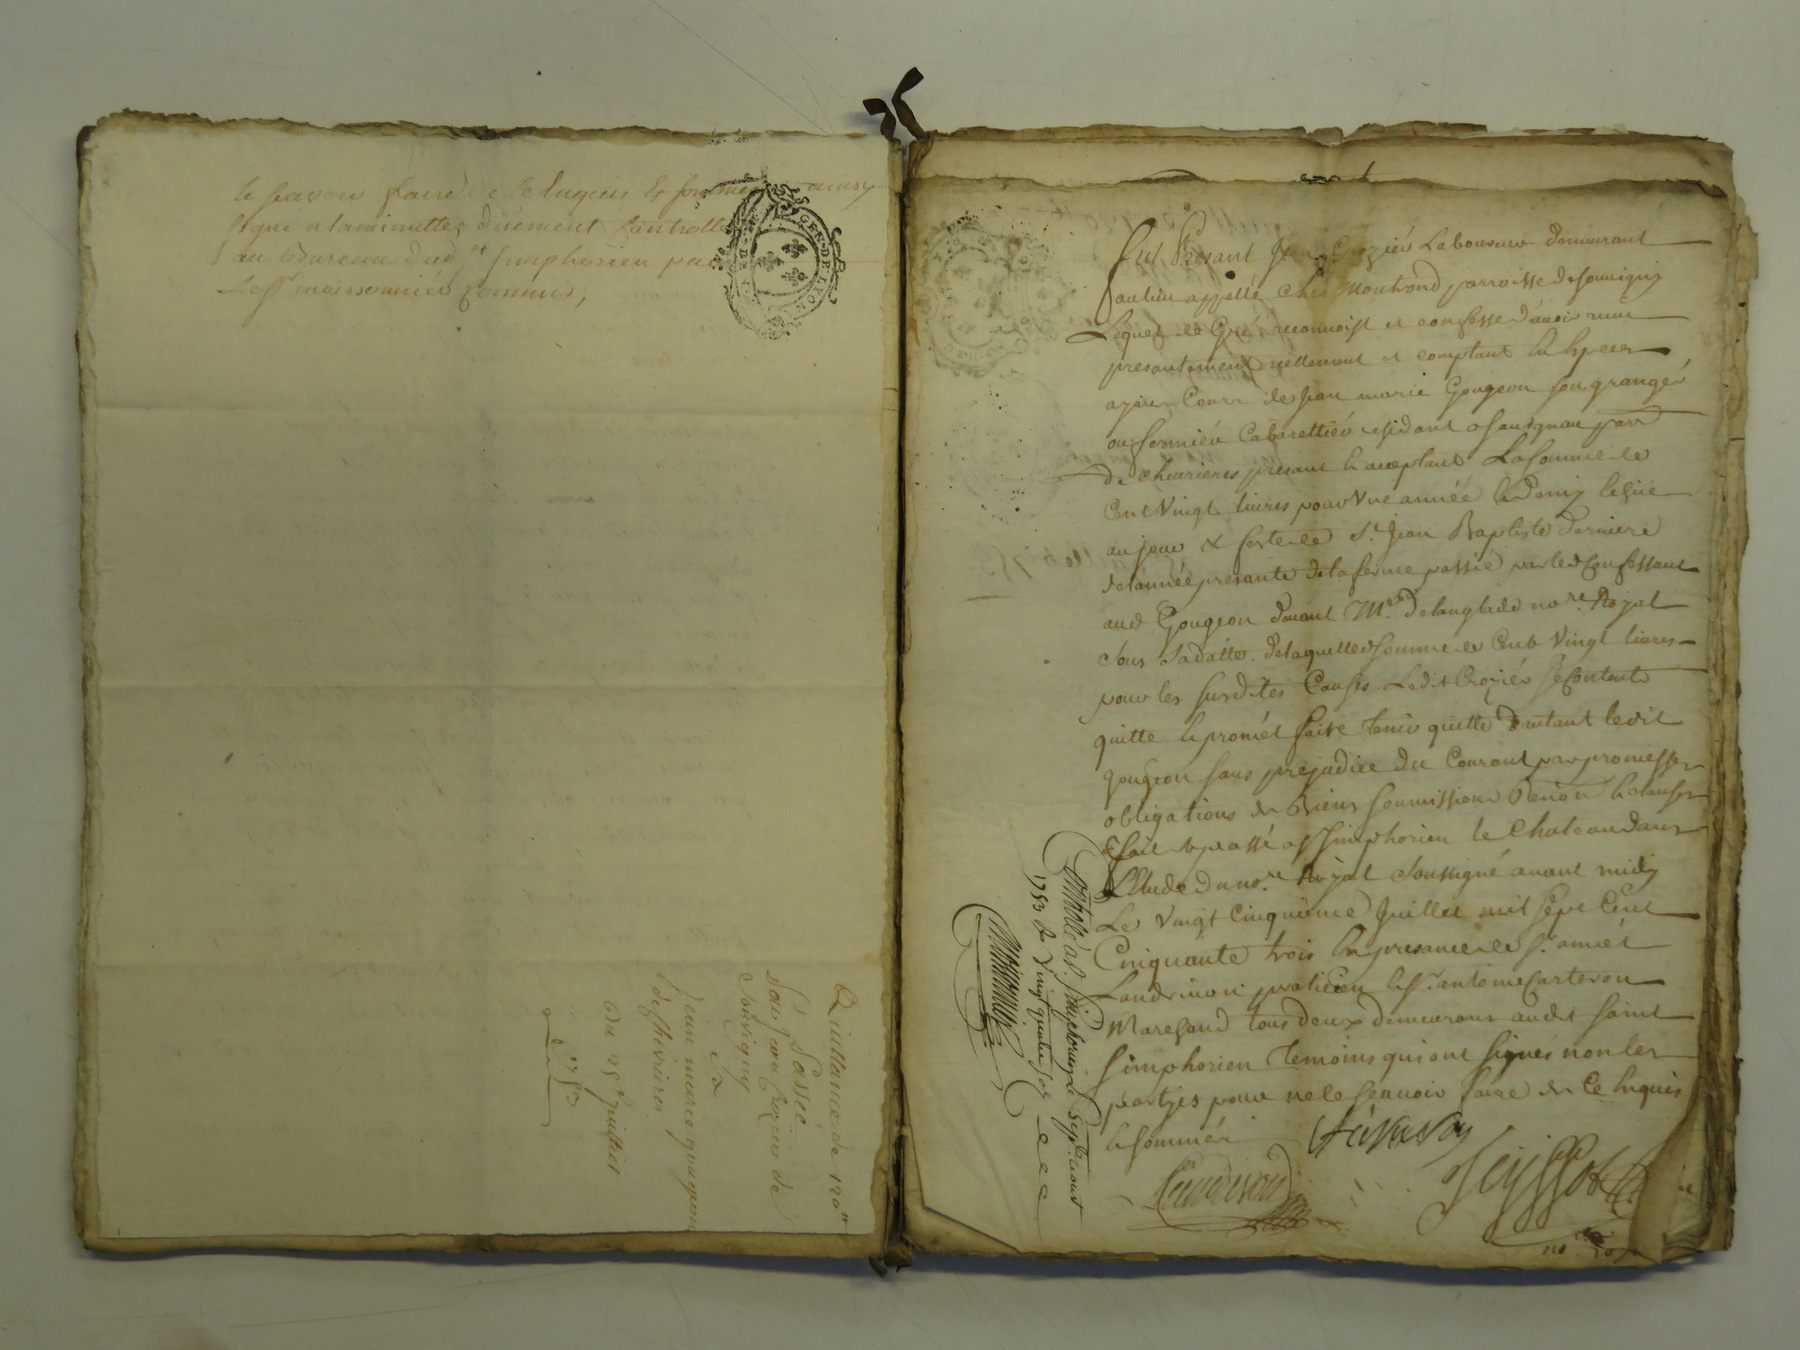 le scavoir faire de ce Enquis & sommés ainsy
signé a la minutte, duement Controllé
au Bureau dud St Simphorien par
Le sr moissonnier Commis,
GEN DE LYON
Quittance de 120 ll
Passée
Par jean Crozier de
Souvigny
a
Jean marie gougeon
de chevrieres
Du 25e Juillet
1753
Fut Présant Jean Crozier Laboureur demeurant
au lieu appellé Chez Montrond parroisse de Souvigny
Lequel de Gré reconnoist et confesse d'avoir receu
presantement reellement et comptant En Especes
ayant Cours de Jean marie Gougeon son grangé
ou fermiér Cabarettiér residant a parr
de chevrieres presant & acceptant La somme de
Cent Vingt livres pour Une année & Demy
au jour & feste de St Jean Baptiste derniere
de l'année presante de la ferme passée par led Confessant
aud Gougeon devant Me Delanglade nore Royal
sous sa datte. de laquelle somme de Cent Vingt livres
pour les susdites Causes Ledit Crozier se Contente
quitte & promet faire tenir quitte d'autant ledit
gougeon sans prejudice du Courant par promesses
obligations de Biens soumissions Renon & clauses
Fait & passé a St Simphorien le Chateau dans
L'Etude du nore Royal soussigné avant midy
Le vingt Cinquieme Juillet mil sept Cent
Cinquante trois En presance de Sr
Landrivon praticien & Sr antoine Carteron
Marchand tous deux demeurans audit saint
Simphorien Temoins qui ont signés non les
partyes pour ne le scavoir faire de Ce Enquis
& sommés
Landrivon
Controllé a St Simphorien le Sept. aout
1753 R vingt quatre sols